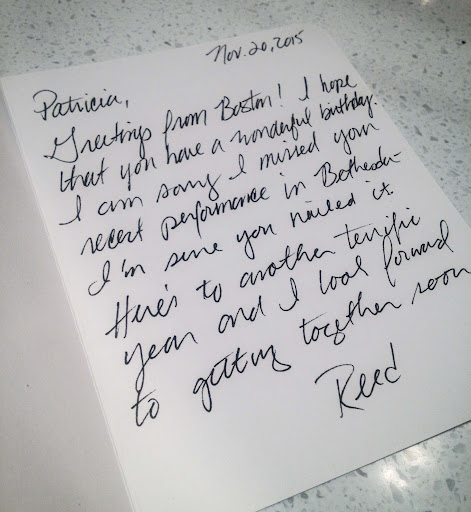 Nov. 20, 2015
Patricia,
Greetings from Boston! I hope
that you have a wonderful birthday.
I am sorry I missed your
recent performance in Bethesda
I'm sure you nailed it.
Here's to another terrific
year and I look forward
to getting together soon
Reed